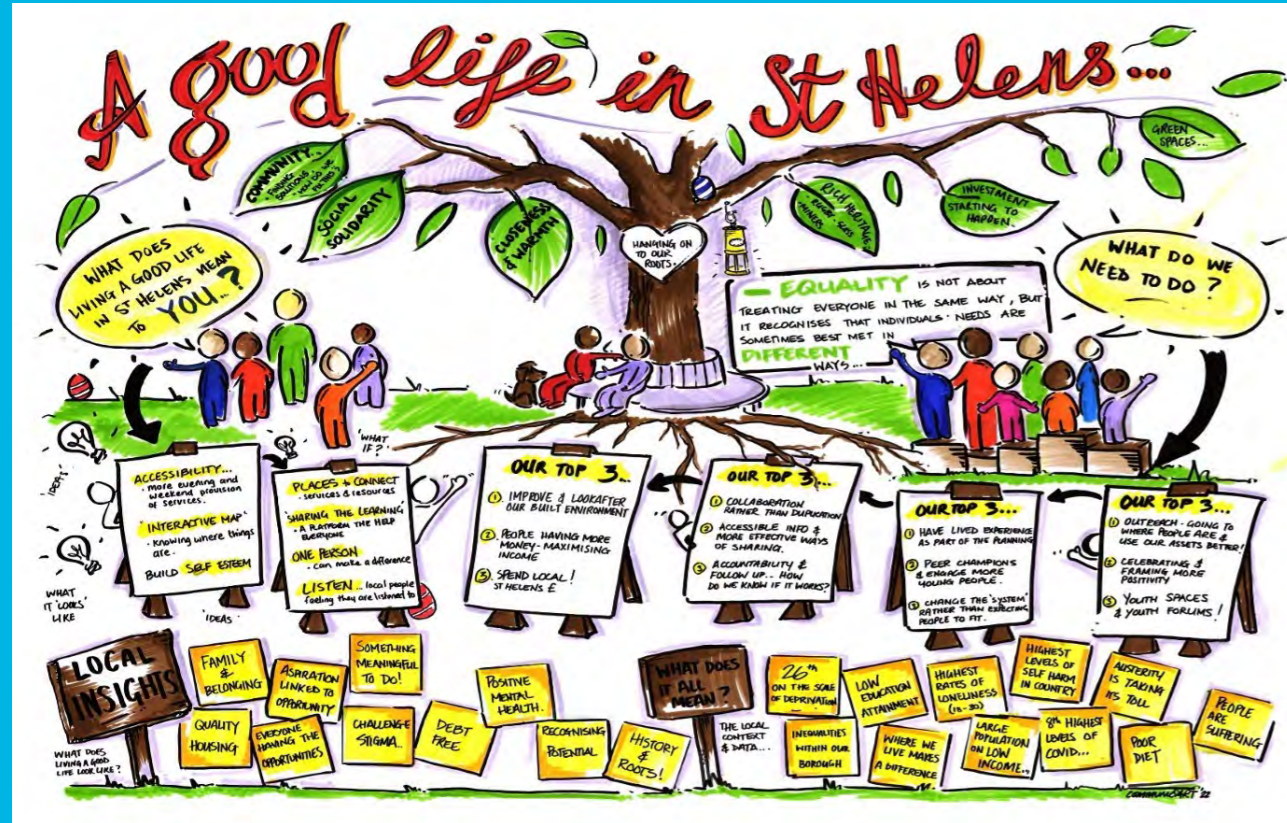 A good life in St Helens...
COMMUNITY..
FINDING
SOLUTIONS
"HOW DO WE
FIX THIS"?
SOCIAL
SOLIDARITY
CLOSENESS
& WARMTH
HANGING ON
TO OUR
ROOTS.
RICH HERITAGE
RUGBY
GLASS
MINERS
INVESTMENT
STARTING TO
HAPPEN.
GREEN
SPACES...
WHAT DOES
LIVING A GOOD LIFE
IN ST HELENS MEAN
TO YOU..?
— EQUALITY IS NOT ABOUT
TREATING EVERYONE IN THE SAME WAY, BUT
IT RECOGNISES THAT INDIVIDUALS' NEEDS ARE
SOMETIMES BEST MET IN
DIFFERENT
WAYS...
WHAT DO WE
NEED TO DO?
'IDEAS'
WHAT
IT 'LOOKS'
LIKE
'IDEAS'
'WHAT
IF'?
ACCESSIBILITY...
· more evening and
weekend provision
of services.
"INTERACTIVE MAP"
· Knowing where things
are.
BUILD SELF ESTEEM
PLACES to CONNECT
· services & resources
'SHARING THE LEARNING'
· A PLATFORM THE HELP
EVERYONE
ONE PERSON
· can make a difference
LISTEN... local people
feeling they are listened to
OUR TOP 3...
① IMPROVE & LOOKAFTER
OUR BUILT ENVIRONMENT
②. PEOPLE HAVING MORE
MONEY - MAXIMISING
INCOME
③. SPEND LOCAL!
ST HELENS £
OUR TOP 3...
① COLLABORATION
RATHER THAN DUPLICATION
② ACCESSIBLE INFO &
MORE EFFECTIVE WAYS
OF SHARING.
③ ACCOUNTABILITY &
FOLLOW UP... HOW
DO WE KNOW IF IT WORKS?
OUR TOP 3...
① HAVE LIVED EXPERIENCE
AS PART OF THE PLANNING
② PEER CHAMPIONS
& ENGAGE MORE
YOUNG PEOPLE.
③ CHANGE THE 'SYSTEM'
RATHER THAN EXPECTING
PEOPLE TO FIT.
OUR TOP 3...
① OUTREACH - GOING TO
WHERE PEOPLE ARE &
USE OUR ASSETS BETTER!
② CELEBRATING &
FRAMING MORE
POSITIVITY
③ YOUTH SPACES
& YOUTH FORUMS!
LOCAL
INSIGHTS
WHAT DOES
LIVING A GOOD
LIFE LOOK LIKE?
FAMILY
&
BELONGING
ASPIRATION
LINKED TO
OPPORTUNITY
SOMETHING
MEANINGFUL
TO DO!
QUALITY
HOUSING
EVERYONE
HAVING THE
OPPORTUNITIES
CHALLENGE
STIGMA...
DEBT
FREE
POSITIVE
MENTAL
HEALTH.
RECOGNISING
POTENTIAL
HISTORY
&
ROOTS!
WHAT DOES
IT ALL
MEAN?
THE LOCAL
CONTEXT
& DATA...
26th
ON THE SCALE
OF DEPRIVATION
LOW
EDUCATION
ATTAINMENT
HIGHEST
RATES OF
LONELINESS
(18-30)
HIGHEST
LEVELS OF
SELF HARM
IN COUNTRY
AUSTERITY
IS TAKING
ITS TOLL
PEOPLE
ARE
SUFFERING
INEQUALITIES
WITHIN OUR
BOROUGH
WHERE WE
LIVE MAKES
A DIFFERENCE
LARGE
POPULATION
ON LOW
INCOME..
8th HIGHEST
LEVELS OF
COVID...
POOR
DIET
communicART '22